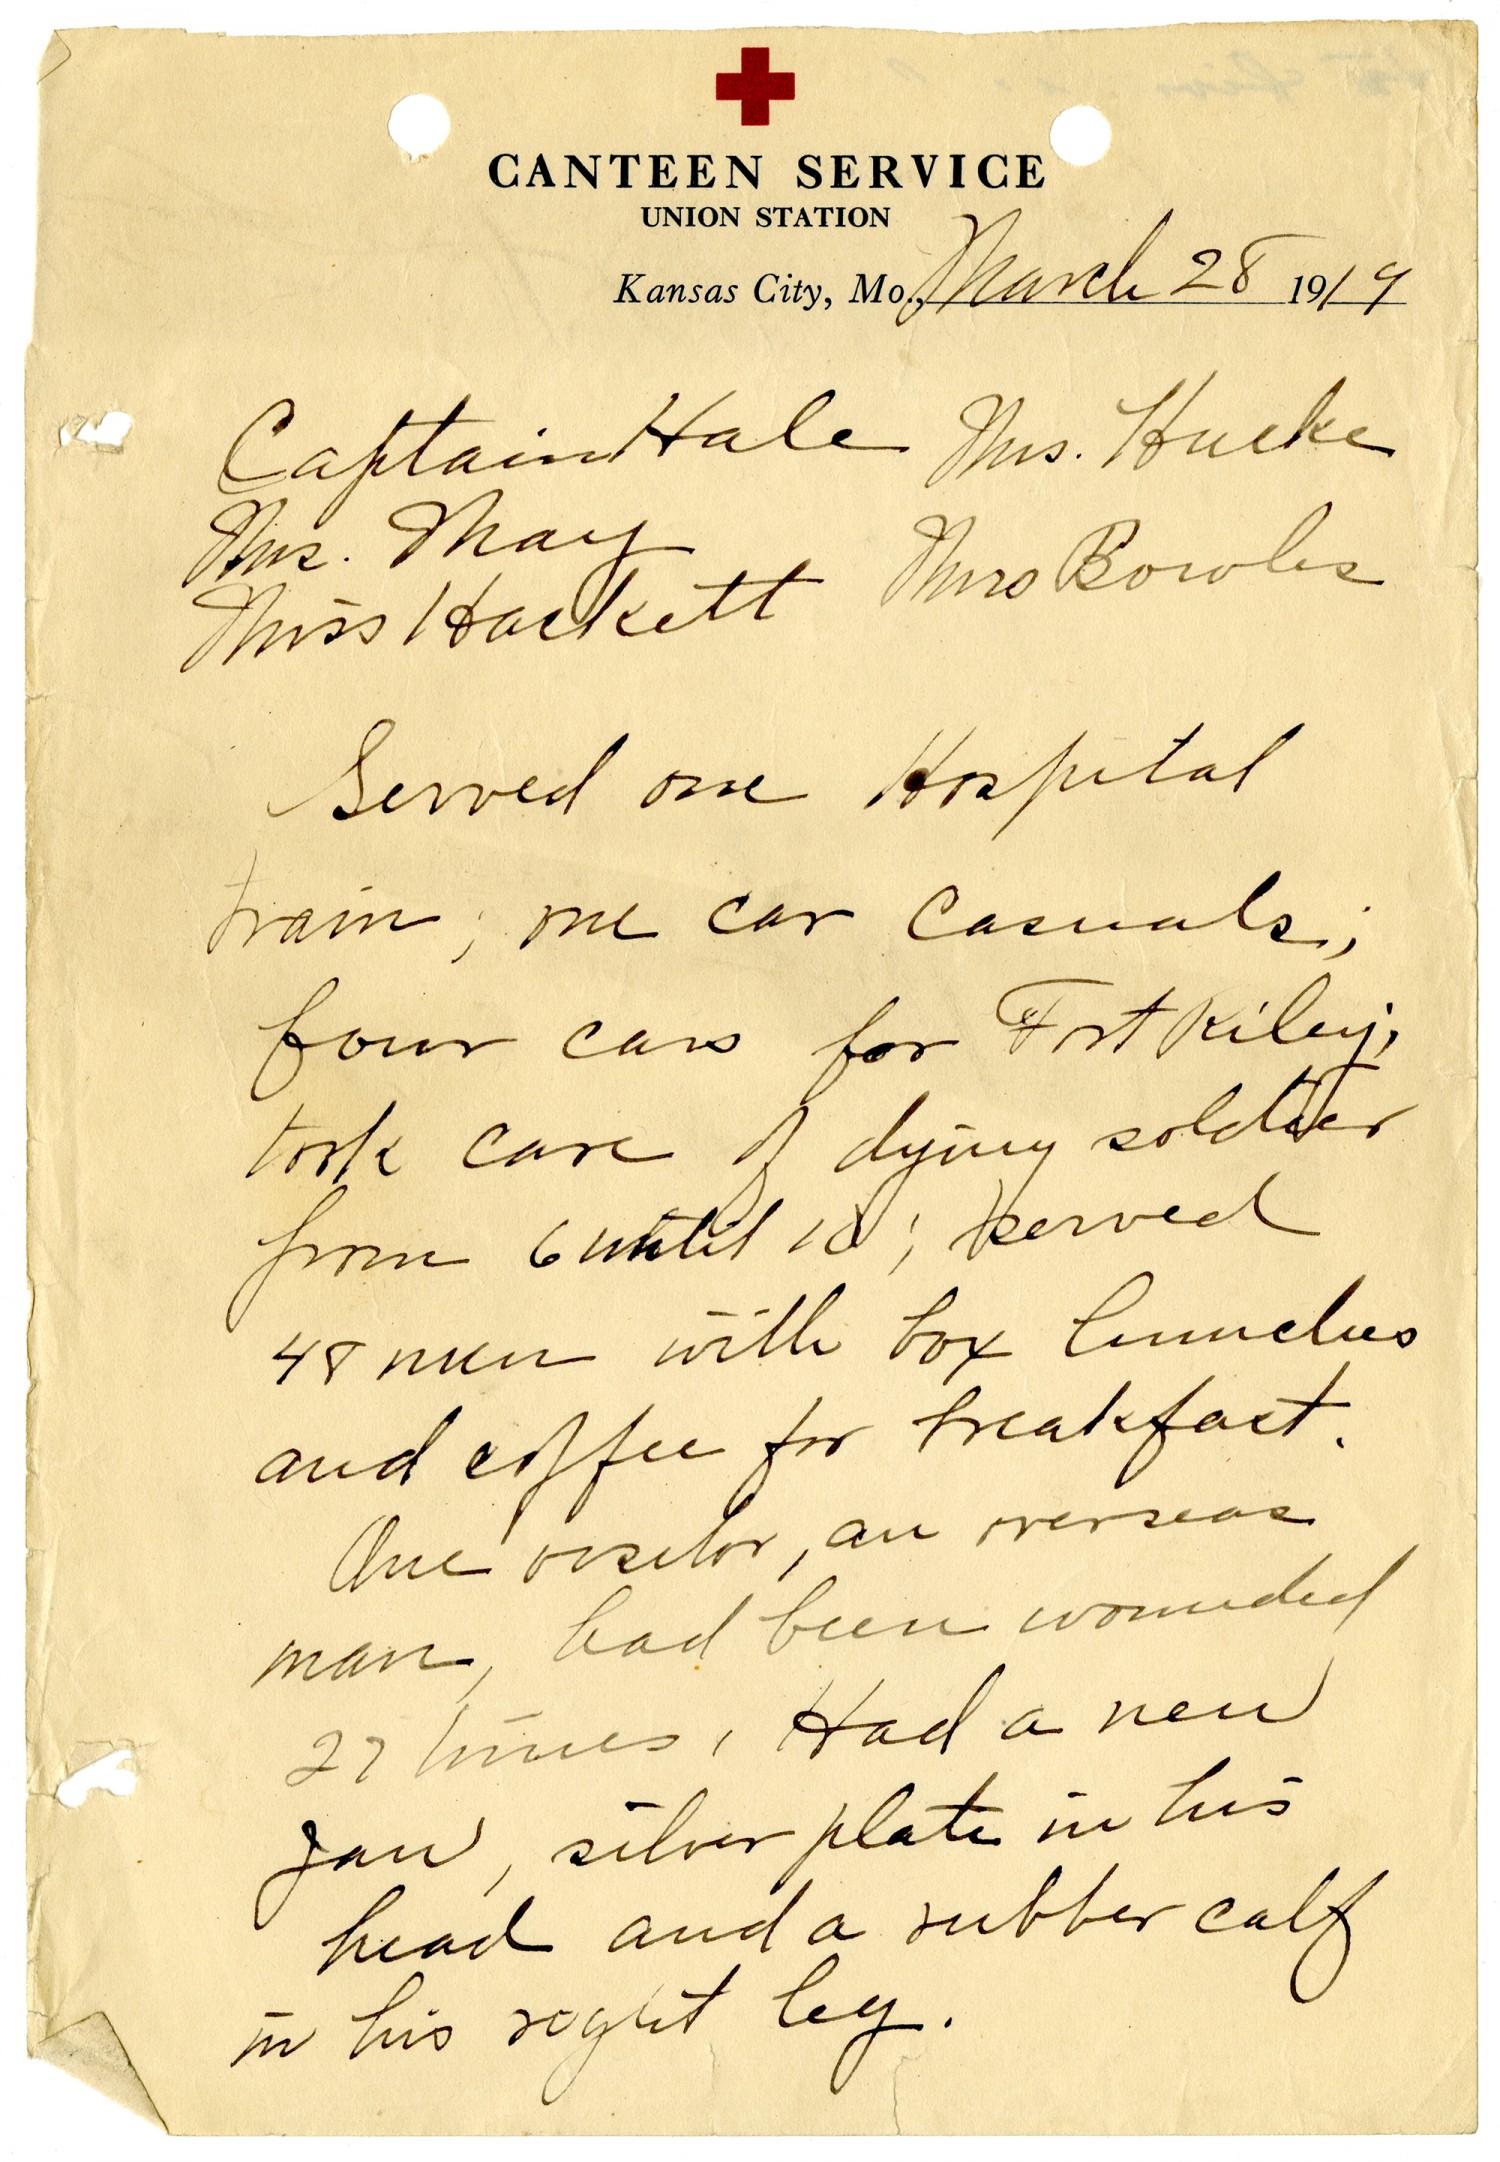 CANTEEN SERVICE
UNION STATION
Kansas City, Mo., March 28 1919
Captain Hale Mrs. Hucke
Mrs. May Mrs Bowles
Miss Hackett
Served one Hospital
train; one car Casuals;
four cars for Fort Riley;
took care of dying soldier
from 6 until 10; served
48 men with box lunches
and coffee for breakfast.
One visitor, an overseas
man, had been wounded
27 times. Had a new
jaw, silver plate in his
head and a rubber calf
in his right leg.